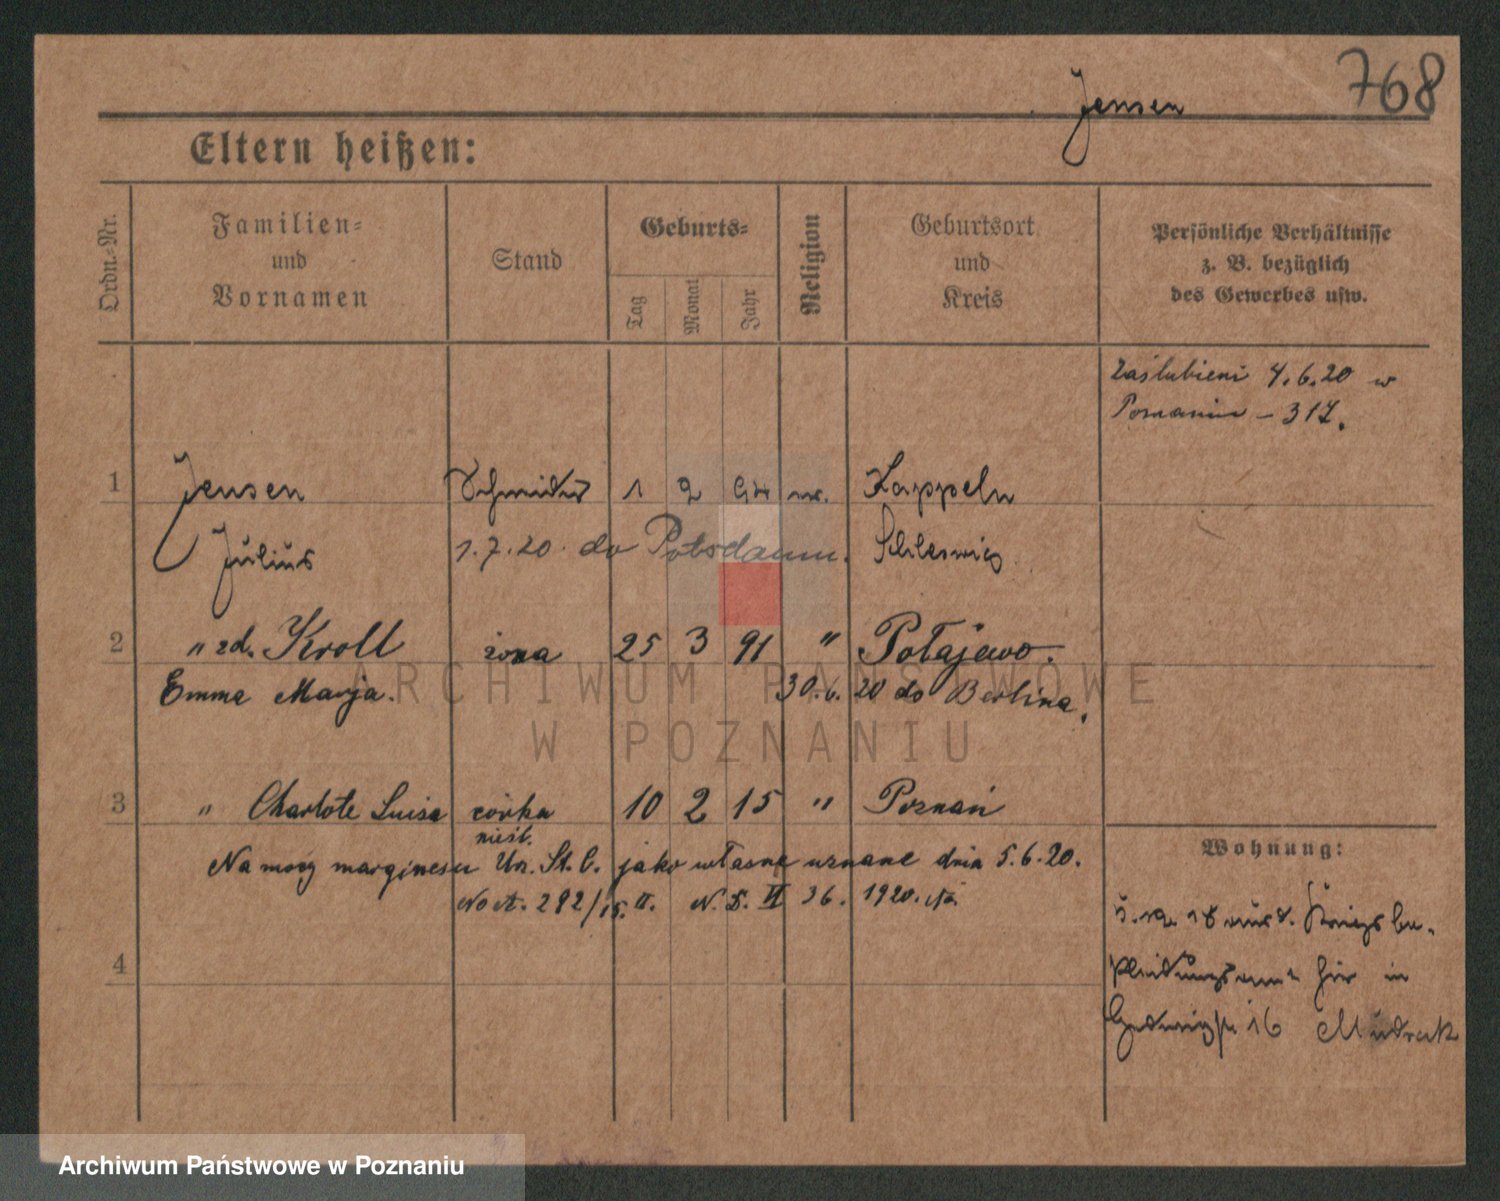 768
Jensen
Eltern heißen:
Ordn.-Nr.
Familien-
und
Vornamen
Stand
Geburts-
Tag
Monat
Jahr
Religion
Geburtsort
und
Kreis
Persönliche Verhältnisse
z. B. bezüglich
des Gewerbes usw.
Zaślubieni 4.6.20 w
Poznaniu – 317.
1 Jensen Schneider 1 2 94 ev. Kappeln
Julius 1.7.20. do Potsdamu. Schleswig
2 " zd. Kroll żona 25 3 91 " Połajewo.
Emma Marja. 30.6.20 do Berlina.
3 " Charlote Luisa córka 10 2 15 " Poznań
nieśl.
Na mocy marginesu Urz. St. C. jako własne uznane dnia 5.6.20.
No. 292/15. II. N. D. VI 36. 1920.
4
Wohnung:
18 Kriegsbe-
kleidungsamt hier in
Hedwigstr 16 Mudrack
ARCHIWUM PAŃSTWOWE
W POZNANIU
Archiwum Państwowe w Poznaniu